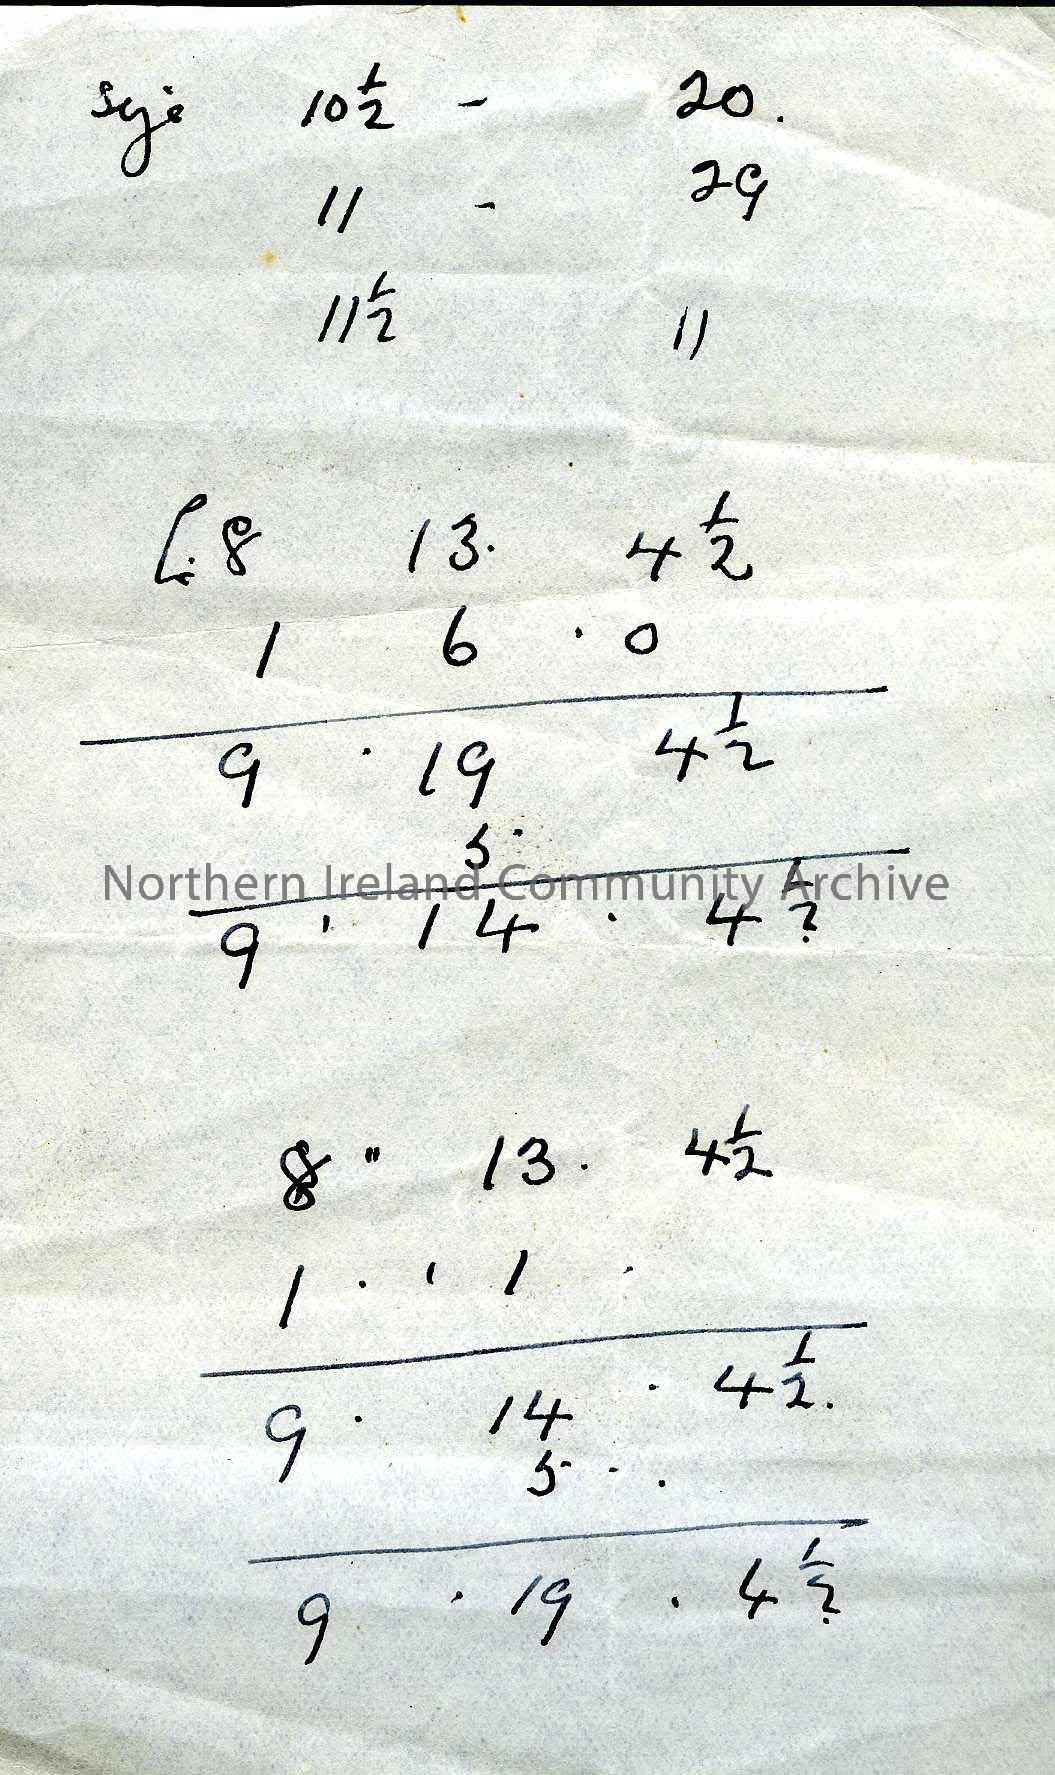 10½ - 20.
11 - 29
11½ 11
£.8 13. 4½
1 6 . 0
9 . 19 4½
5.
Northern Ireland Community Archive
9 . 14 . 4½
8 " 13. 4½
1 . ' 1 .
9 . 14 . 4½.
5 - .
9 . 19 . 4½